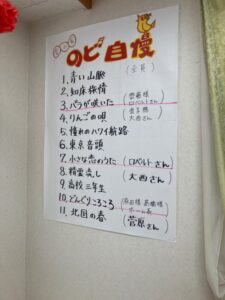 のど自慢
1. 青い山脈 (全員)
2. 知床旅情
3. バラが咲いた (齋藤様 ロベルトさん)
4. りんごの唄 (金子様 大西さん)
5. 憧れのハワイ航路
6. 東京音頭
7. 小さな恋のうた (ロベルトさん)
8. 精霊流し (大西さん)
9. 高校三年生
10. どんぐりころころ
11. 北国の春 (菅原さん)